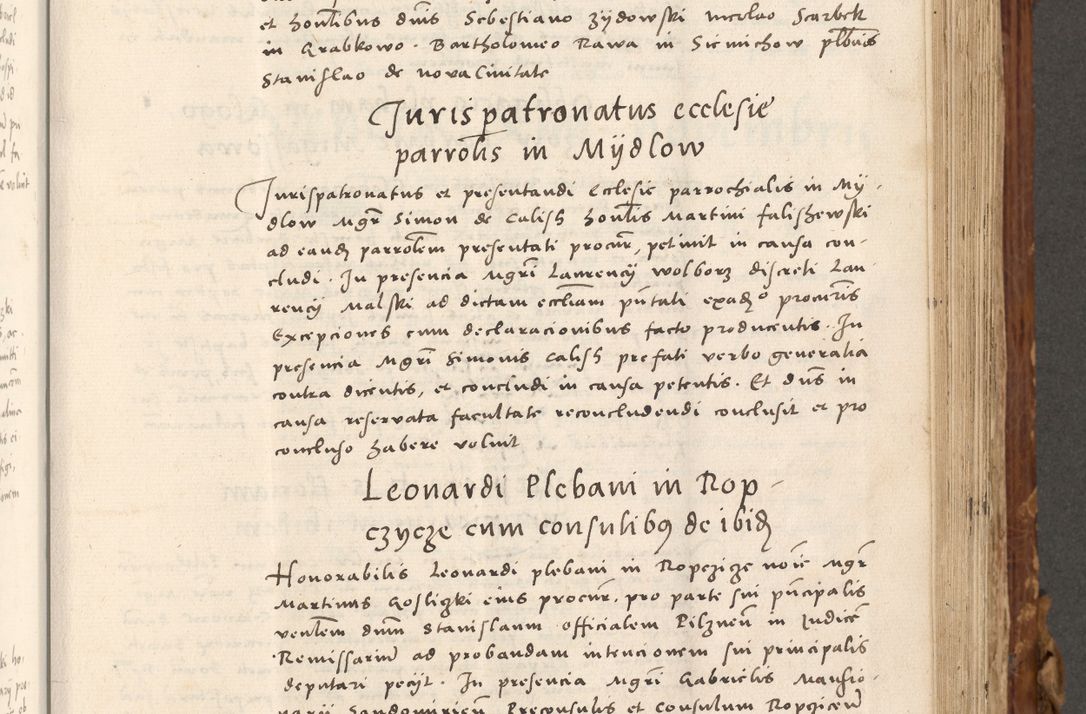 et honlibus dnis Sebestiano zydowski nicolao Scarbek
in Grabkowo. Bartholomeo Rawa in Siemichow plbnis
Stanislao de novalivitate
Jurispatronatus ecclesie
parrolis in Mÿdlow
Jurispatronatus et presentandi Ecclesie parrochialis in Mÿ-
dlow Mgr Simon de Calish honlis Martini falishewski
ad eandz parrolem presentati procur, petivit in causa con-
cludi. In presencia Mgri Laurencÿ wolborz discreti Lau-
rencÿ Malski ad dictam eccliam pntati exado procuris
Excepciones cum declaracionibus facto producentis. In
presencia Mgri Simonis Calish prefati verbo generalia
contra dicentis, et concludi in causa petentis. Et dns in
causa reservata facultate reconcludendi conclusit et pro
concluso habere voluit
Leonardi Plebani in Rop-
czycze cum consulibq de ibidz
Honorabilis Leonardi plebani in Ropczicze noie Mgr
Martinus Goslizki eius procur. pro parte sui pncipalis
venlem dnm Stanislaum officialem Pilznen in Judicem
Remissarium ad probandam intencionem sui principalis
deputari pecÿt. In presencia Mgri Gabrielis Mansio-
narii Sandomirien Preconsulis et Consulum Ropczicen